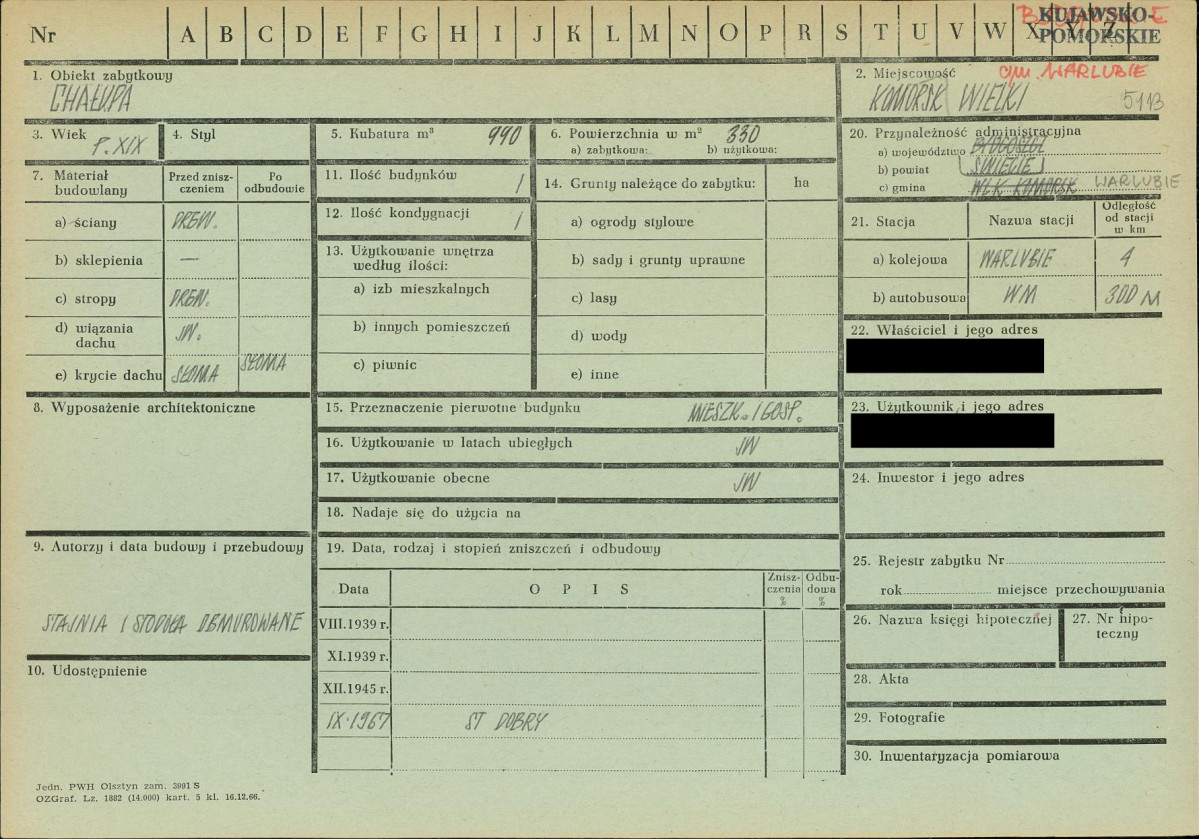 Nr A B C D E F G H I J K L M N O P R S T U V W X Y Z
KUJAWSKO-
POMORSKIE
1. Obiekt zabytkowy
CHAŁUPA
2. Miejscowość gm. WARLUBIE
KOMORSK WIELKI 5113
3. Wiek
P. XIX
4. Styl
5. Kubatura m³ 990
6. Powierzchnia w m² 330
a) zabytkowa: b) użytkowa:
7. Materiał budowlany
Przed znisz-
czeniem
Po
odbudowie
a) ściany DREW.
b) sklepienia —
c) stropy DREW.
d) wiązania
dachu JW.
e) krycie dachu SŁOMA SŁOMA
8. Wyposażenie architektoniczne
9. Autorzy i data budowy i przebudowy
STAJNIA I STODOŁA OBMUROWANE
10. Udostępnienie
11. Ilość budynków 1
12. Ilość kondygnacji 1
13. Użytkowanie wnętrza
według ilości:
a) izb mieszkalnych
b) innych pomieszczeń
c) piwnic
14. Grunty należące do zabytku: ha
a) ogrody stylowe
b) sady i grunty uprawne
c) lasy
d) wody
e) inne
15. Przeznaczenie pierwotne budynku MIESZK. I GOSP.
16. Użytkowanie w latach ubiegłych JW
17. Użytkowanie obecne JW
18. Nadaje się do użycia na
19. Data, rodzaj i stopień zniszczeń i odbudowy
Data OPIS
Znisz-
czenia
%
Odbu-
dowa
%
VIII.1939 r.
XI.1939 r.
XII.1945 r.
IX.1967 ST DOBRY
20. Przynależność administracyjna
a) województwo BYDGOSZCZ
b) powiat ŚWIECIE
c) gmina WLK KOMORSK WARLUBIE
21. Stacja Nazwa stacji
Odległość
od stacji
w km
a) kolejowa WARLUBIE 4
b) autobusowa WM 300 M
22. Właściciel i jego adres
23. Użytkownik i jego adres
24. Inwestor i jego adres
25. Rejestr zabytku Nr
rok miejsce przechowywania
26. Nazwa księgi hipotecznej
27. Nr hipo-
teczny
28. Akta
29. Fotografie
30. Inwentaryzacja pomiarowa
Jedn. PWH Olsztyn zam. 3991 S
OZGraf. Lz. 1882 (14.000) kart. 5 kl. 16.12.66.